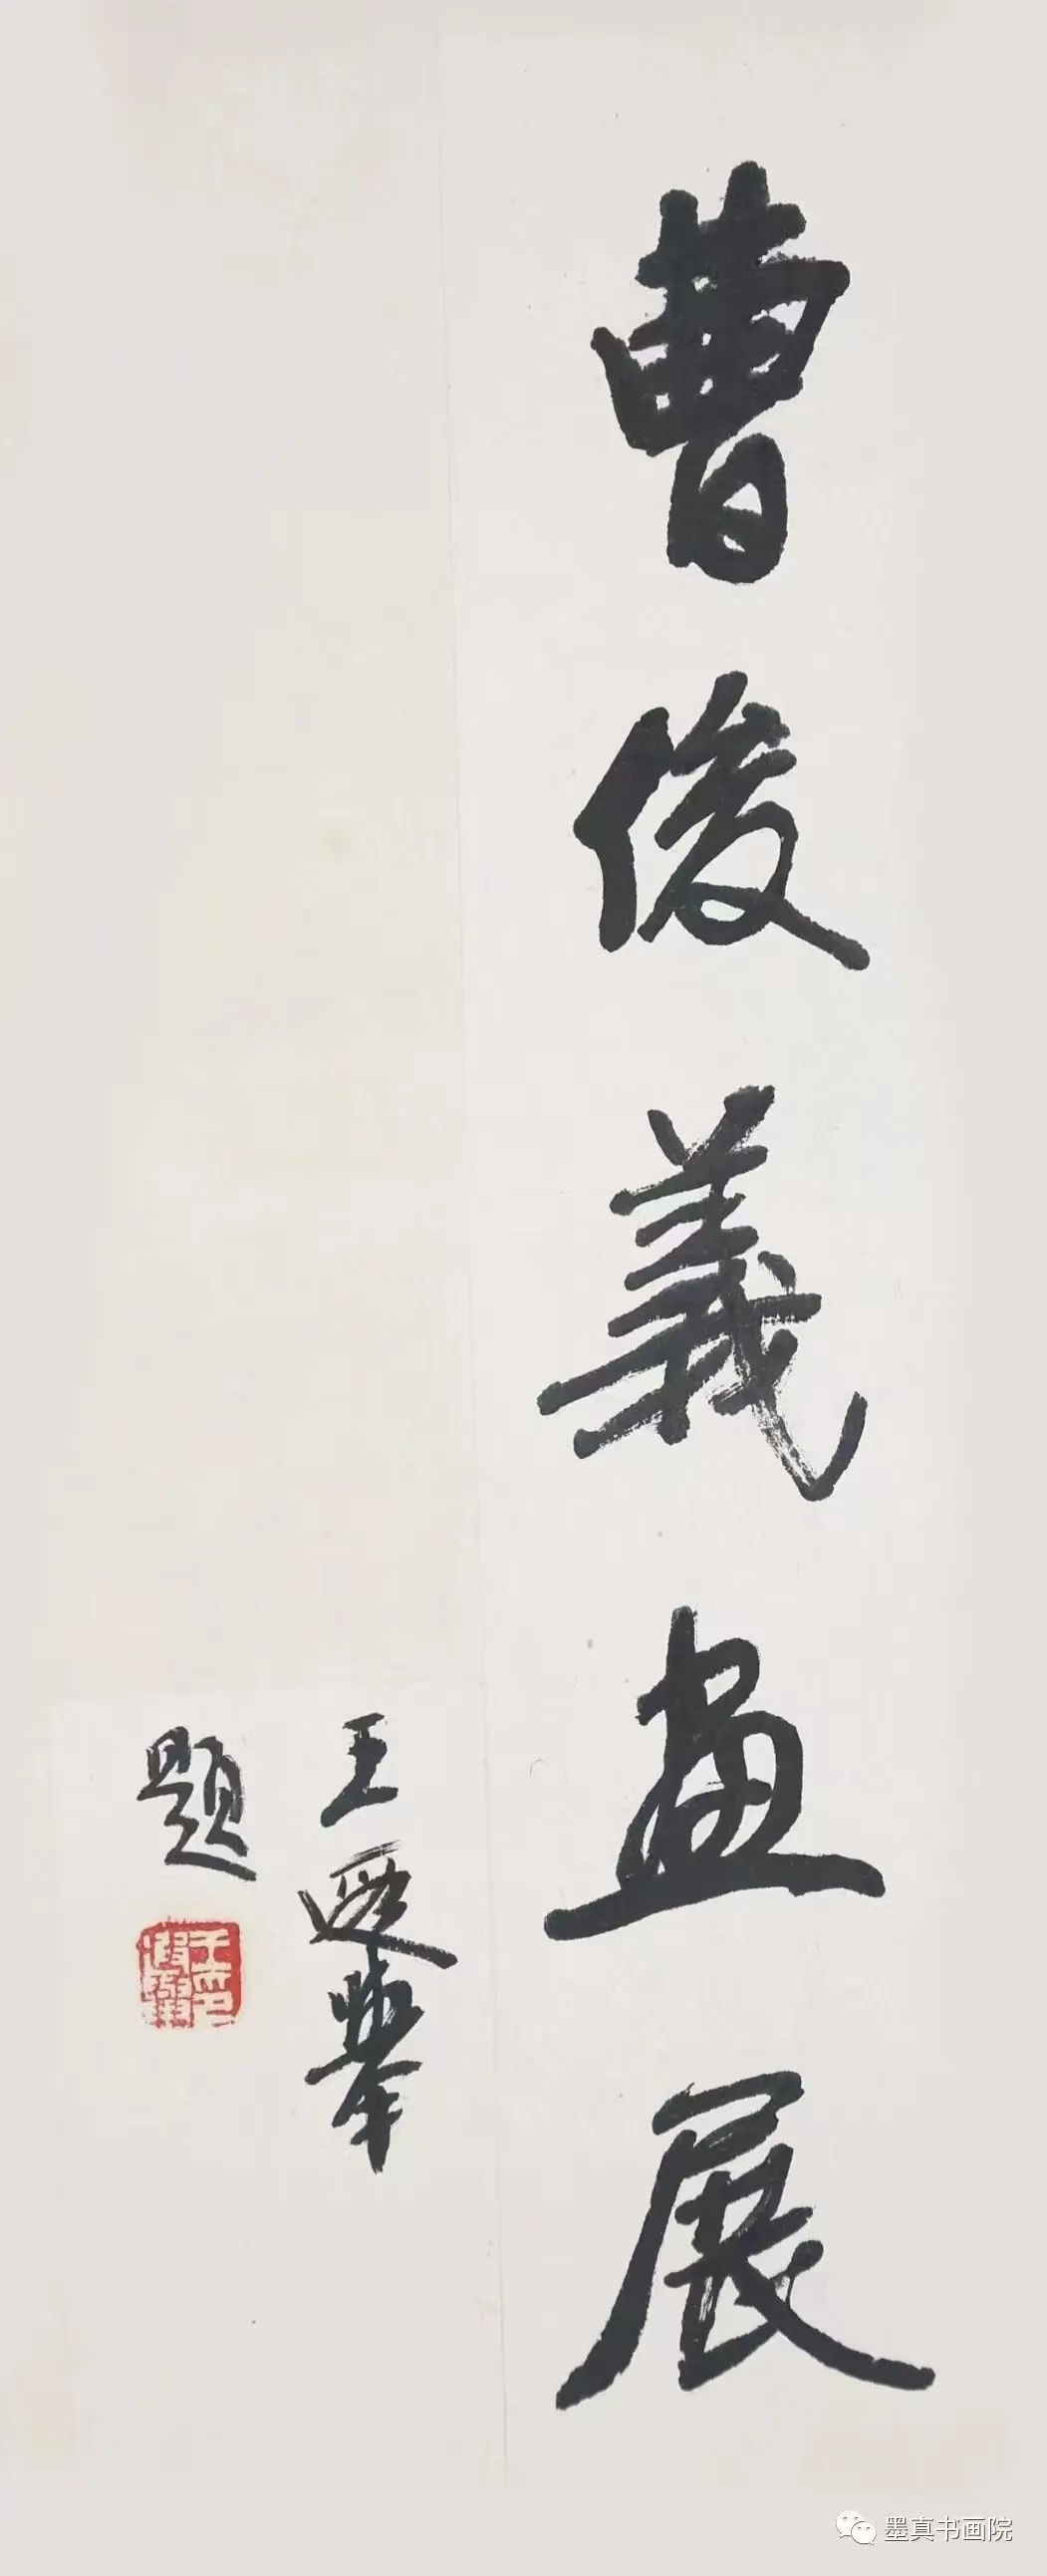 曹俊義畫展
王遐舉
題
墨真书画院